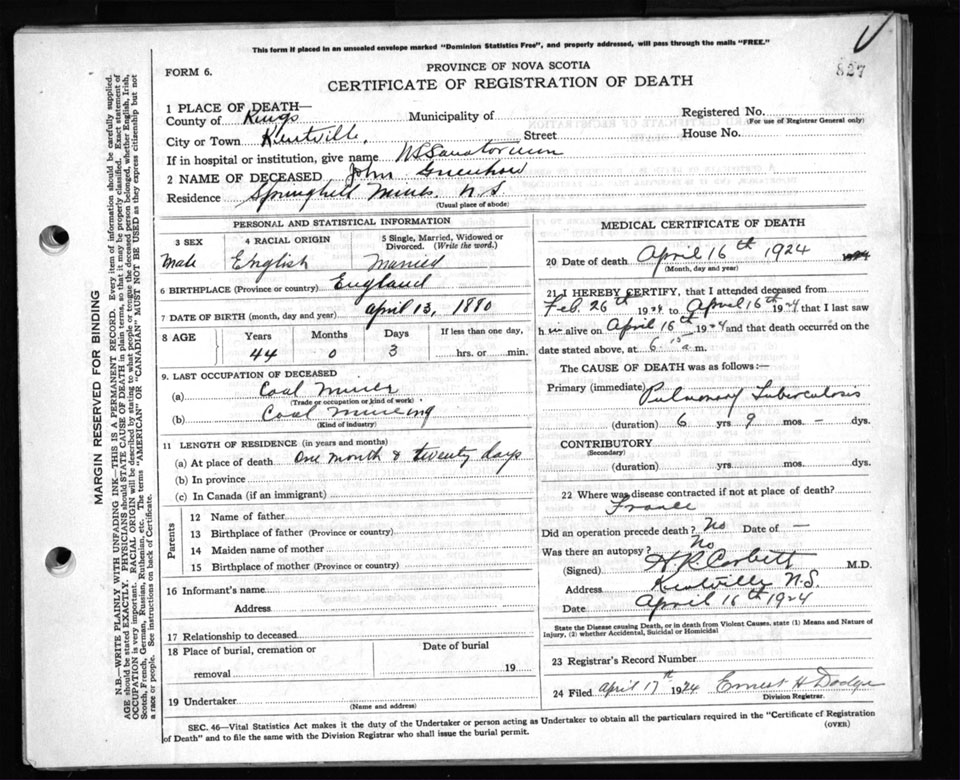 This form if placed in an unsealed envelope marked "Dominion Statistics Free", and properly addressed, will pass through the mails "FREE."
827
FORM 6.
PROVINCE OF NOVA SCOTIA
CERTIFICATE OF REGISTRATION OF DEATH
1 PLACE OF DEATH—
County of Kings Municipality of Registered No.
(For use of Registrar General only)
City or Town Kentville, Street House No.
If in hospital or institution, give name N.S. Sanatorium
2 NAME OF DECEASED John Greenhow
Residence Springhill Mines. N.S
(Usual place of abode)
PERSONAL AND STATISTICAL INFORMATION
3 SEX 4 RACIAL ORIGIN 5 Single, Married, Widowed or Divorced. (Write the word.)
Male English Married
6 BIRTHPLACE (Province or country) England
7 DATE OF BIRTH (month, day and year) April 13, 1880
8 AGE Years Months Days If less than one day,
44 0 3 hrs. or min.
9. LAST OCCUPATION OF DECEASED
(a) Coal Miner
(Trade or occupation or kind of work)
(b) Coal Mining
(Kind of industry)
11 LENGTH OF RESIDENCE (in years and months)
(a) At place of death One month & twenty days
(b) In province
(c) In Canada (if an immigrant)
Parents
12 Name of father
13 Birthplace of father (Province or country)
14 Maiden name of mother
15 Birthplace of mother (Province or country)
16 Informant's name
Address
17 Relationship to deceased
18 Place of burial, cremation or removal
Date of burial
19
19 Undertaker
(Name and address)
MEDICAL CERTIFICATE OF DEATH
20 Date of death April 16th 1924
(Month, day and year)
21 I HEREBY CERTIFY, that I attended deceased from
Feb. 26th 1924 to April 16th 1924 that I last saw
h im alive on April 16th 1924 and that death occurred on the
date stated above, at 6.15 a.m.
The CAUSE OF DEATH was as follows:—
Primary (immediate) Pulmonary Tuberculosis
(duration) 6 yrs 9 mos. — dys.
CONTRIBUTORY
(Secondary)
(duration) yrs. mos. dys.
22 Where was disease contracted if not at place of death?
France
Did an operation precede death? No Date of —
Was there an autopsy? No
(Signed) H R Corbett M.D.
Address Kentville N.S.
Date April 16th 1924
State the Disease causing Death, or in death from Violent Causes, state (1) Means and Nature of
Injury, (2) whether Accidental, Suicidal or Homicidal
23 Registrar's Record Number
24 Filed April 17th 1924 Ernest H Dodge
Division Registrar.
SEC. 46—Vital Statistics Act makes it the duty of the Undertaker or person acting as Undertaker to obtain all the particulars required in the "Certificate of Registration
of Death" and to file the same with the Division Registrar who shall issue the burial permit.
(OVER)
MARGIN RESERVED FOR BINDING
N.B—WRITE PLAINLY WITH UNFADING INK—THIS IS A PERMANENT RECORD. Every item of information should be carefully supplied.
AGE should be stated EXACTLY. PHYSICIANS should STATE CAUSE OF DEATH in plain terms, so that it may be properly classified. Exact statement of
OCCUPATION is very important. RACIAL ORIGIN will be described by stating to what people or tongue the deceased person belonged, whether English, Irish,
Scotch, French, German, Russian, Ruthenian, etc. The terms "AMERICAN" OR "CANADIAN" MUST NOT BE USED as they express citizenship but not
a race or people. See instructions on back of Certificate.